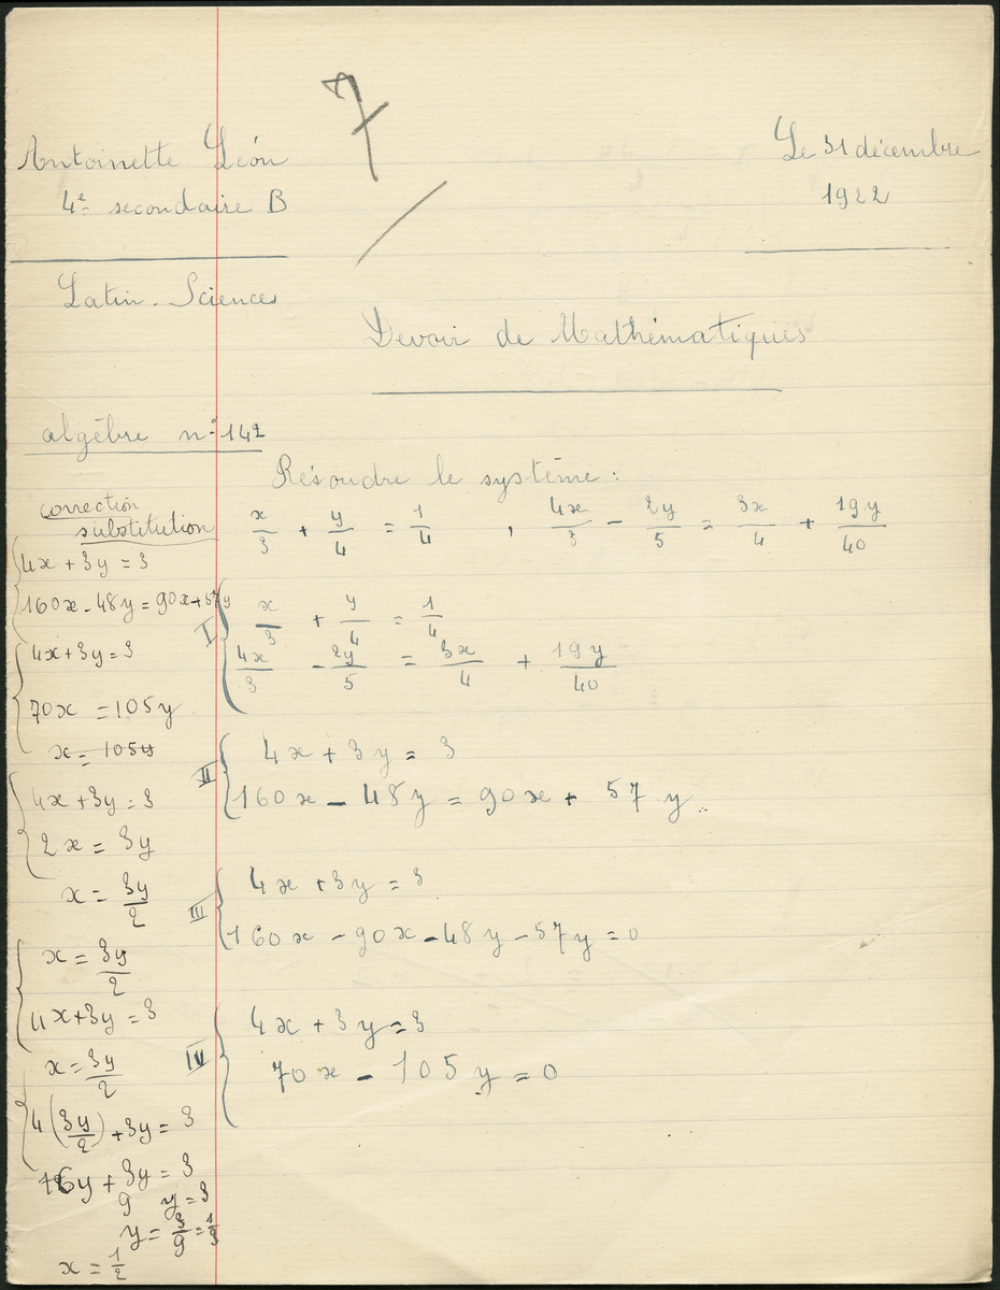 7
Antoinette Léon
4e secondaire B
Le 31 décembre
1922
Latin. Sciences
Devoir de Mathématiques
algèbre n° 142
Résoudre le système :
x/3 + y/4 = 1/4 , 4x/3 - 2y/5 = 3x/4 + 19y/40
I { x/3 + y/4 = 1/4
4x/3 - 2y/5 = 3x/4 + 19y/40
II { 4x + 3y = 3
160x - 48y = 90x + 57y
III { 4x + 3y = 3
160x - 90x - 48y - 57y = 0
IV { 4x + 3y = 3
70x - 105y = 0
correction
substitution
{ 4x + 3y = 3
160x - 48y = 90x + 57y
{ 4x + 3y = 3
70x = 105y
x = 105y
{ 4x + 3y = 3
2x = 3y
x = 3y/2
{ x = 3y/2
4x + 3y = 3
{ x = 3y/2
4(3y/2) + 3y = 3
6y + 3y = 3
9y = 3
y = 3/9 = 1/3
x = 1/2